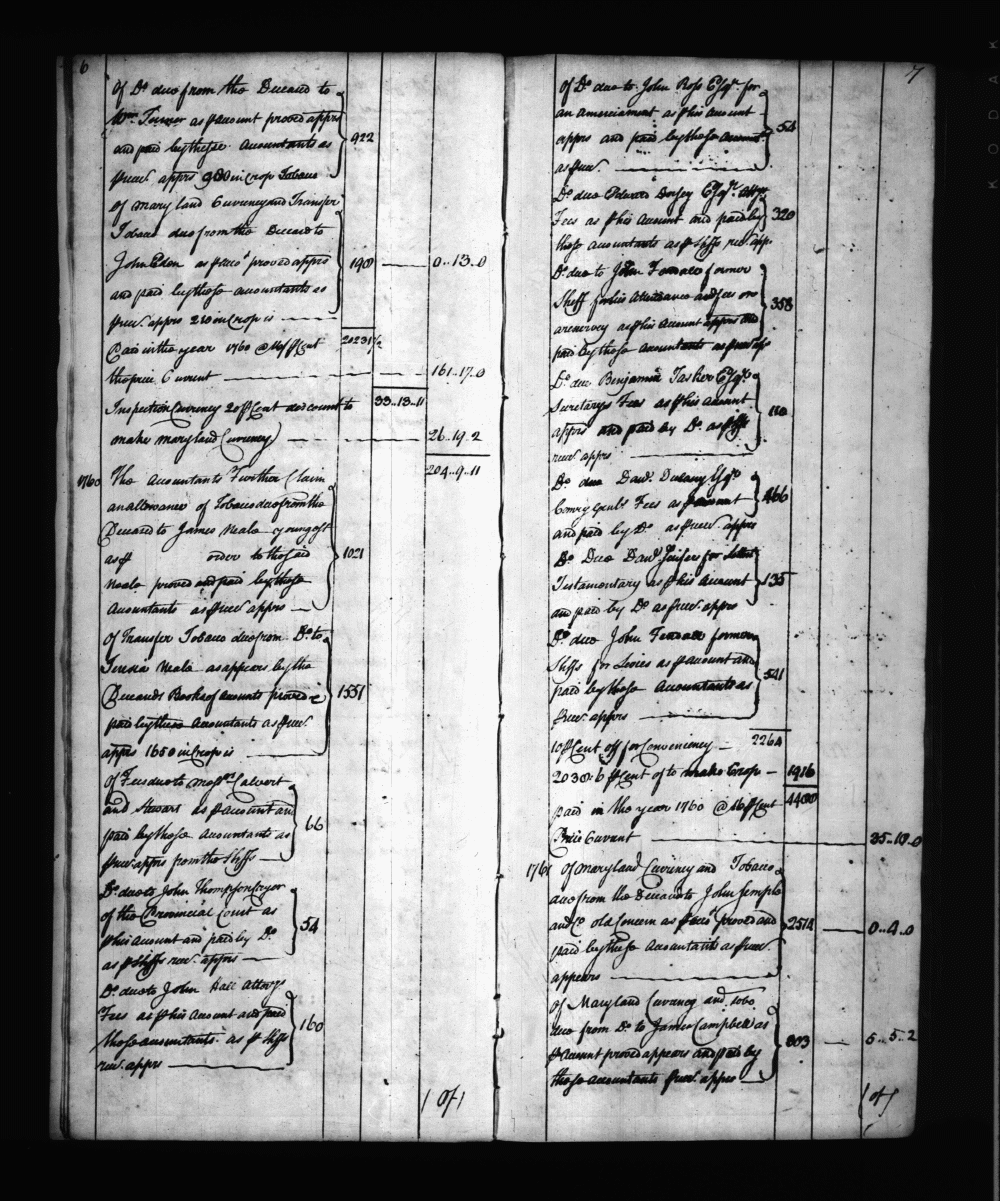 6
of Do due from the Deceased to
Wm. Turner as pr account proved apprs
and paid by these Accountants as
pr rect. apprs 980 in Crop Tobacco
922
of Maryland Currency and Transfer
Tobacco due from the Deceased to
John Eden as pr acct. proved apprs
and paid by these accountants as
pr rect. apprs 210 in Crop is
190 0..13..0
Paid in the year 1760 @ 16/ pr Cent
20231/2
the price Current
161..17..0
Inspection Currency 20 pr Cent discount to
33..13..11
make Maryland Currency
26..19..2
204..9..11
1760 The Accountants Further Claim
an allowance of Tobacco due from the
Deceased to James Neale youngest
as pr order to the said
Neale proved and paid by these
Accountants as pr rect. apprs
1021
of Transfer Tobacco due from Do to
Neale as appears by the
Deceaseds Book of accounts proved &
paid by these Accountants as pr rect.
apprs 1650 in Crop is
1551
of Fees due to Messrs. Calvert
and Stewart as pr account and
paid by these Accountants as
pr rect. apprs from the Shffs
66
Do. due to John Thompson Cryor
of the Provincial Court as
pr his account and paid by Do.
as pr Shffs rect. apprs
54
Do. due to John Hall Attorys
Fees as pr his Account and paid
these accountants as pr Shffs
rect. apprs
160
(of)
7
of Do due to John Ross Esqr. for
an amerciament as pr his account
apprs and paid by these account.
as pr rect.
54
Do. due Edward Dorsey Esqr. Attys
Fees as pr his Account and paid by
these accountants as pr Shffs rect. app.
320
Do. due to John Fendall former
Sheff for his Attendance and fees on
as pr his Account apprs and
paid by these accountants as pr rect. app
358
Do. due Benjamin Tasker Esqr.
Secretarys Fees as pr his account
apprs and paid by Do. as pr Shffs
rect. apprs
110
Do. due Danl. Dulany Esqr.
Comry Genls Fees as pr account
and paid by Do. as pr rect. apprs
466
Do Due Danl. for Letters
Testamentary as pr his Account
and paid by Do as pr rect. apprs
135
Do. due John Fendall former
Shffs for Levies as pr account and
paid by these Accountants as
pr rect. apprs
541
10 pr Cent off for Conveniency
2264
2030: 6 pr Cent of to make Crop
1916
paid in the year 1760 @ 16/ pr Cent
4400
Price Current
35..10..0
1761 of Maryland Currency and Tobacco
due from the Deceased to John Semple
and Co. old Concern as pr acct. proved and
paid by these Accountants as pr rect.
appears
2514 0..4..0
of Maryland Currency and tobo
due from Do. to James Campbell as
pr Account proved appears and paid by
these accountants pr rect. apprs
803 5..5..2
(of)